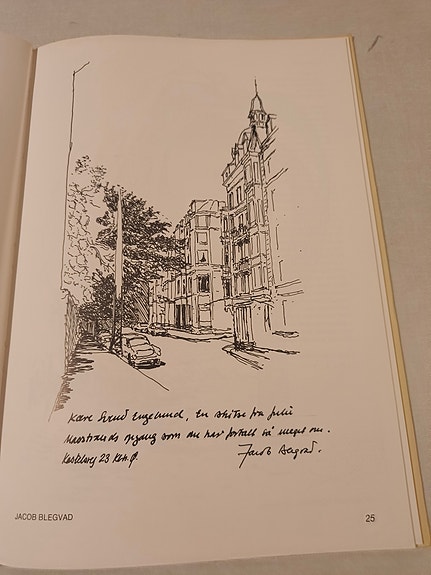 Kære Svend Engelund, En skitse fra Julie
opgang som du har fortalt så meget om.
Kastelsvej 23 Kbh. Ø. Jacob Blegvad.
JACOB BLEGVAD
25